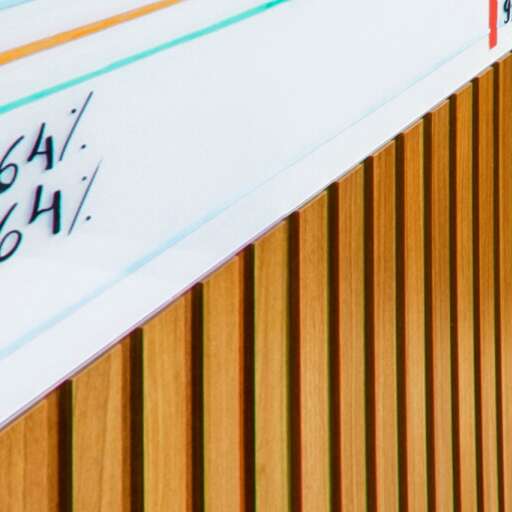 64%
64%